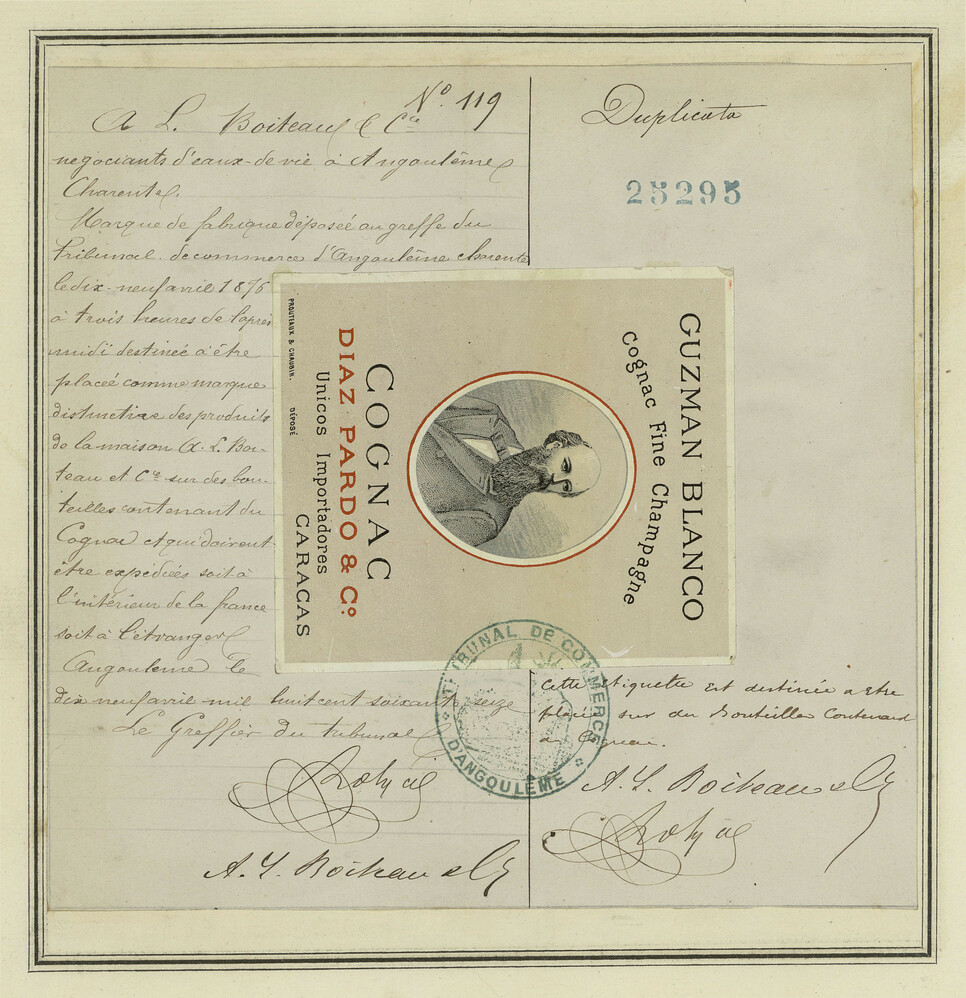 Nº 119
A L. Boiteau & Cie
negociants d'eaux-de-vie à Angoulême
Charente.
Marque de fabrique déposée au greffe du
Tribunal de commerce d'Angoulême charente
le dix-neuf avril 1876
à trois heures de l'après
midi destinée à être
placée comme marque
distinctive des produits
de la maison A. L. Boi-
teau et Cie sur des bou-
teilles contenant du
Cognac et qui doivent
être expédiées soit à
l'intérieur de la france
soit à l'étranger
Angoulême le
dix neuf avril mil huit cent soixante seize
Le Greffier du tribunal
A. L. Boiteau & Cie
Duplicata
25295
GUZMAN BLANCO
Cognac Fine Champagne
COGNAC
DIAZ PARDO & Cº
Unicos Importadores
CARACAS
PROUTEAUX & CHAUBIN. DÉPOSÉ
TRIBUNAL DE COMMERCE
D'ANGOULÊME
Cette étiquette est destinée a etre
placée sur des Bouteilles Contenant
du Cognac.
A. L. Boiteau & Cie